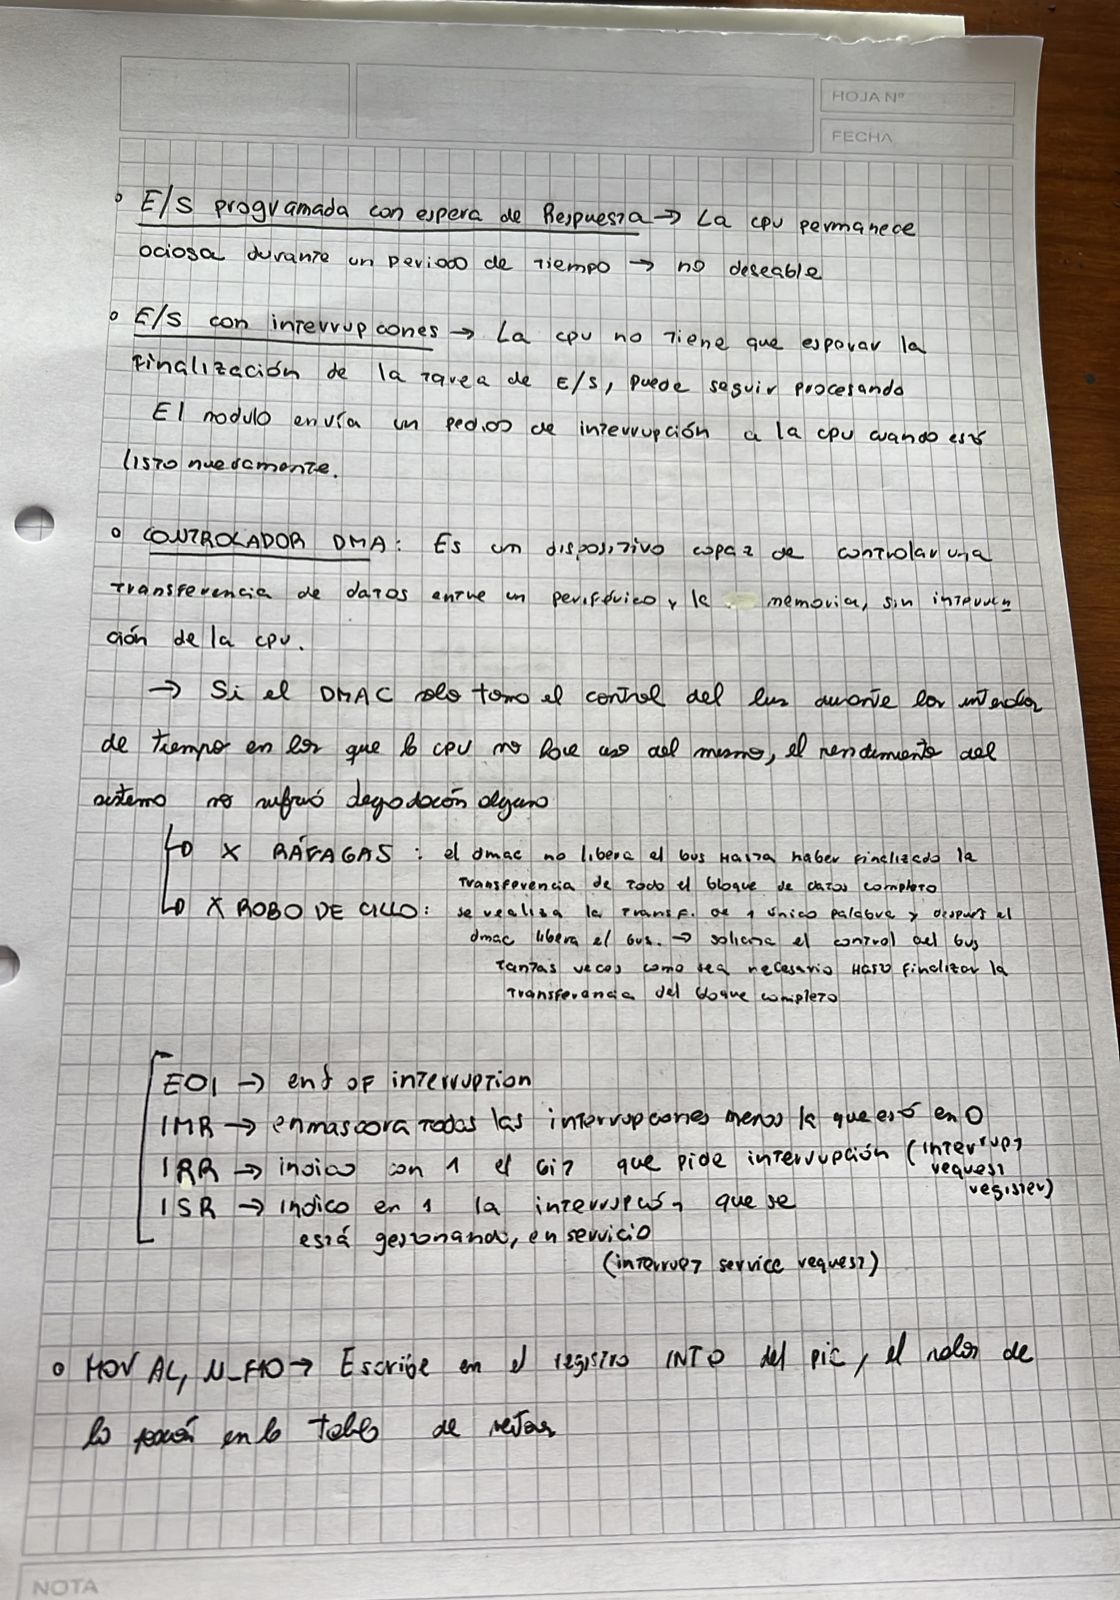 HOJA Nº
FECHA
° E/S programada con espera de Respuesta → La cpu permanece
ociosa durante un periodo de tiempo → no deseable
° E/S con interrupciones → La cpu no tiene que esperar la
finalización de la tarea de E/S, puede seguir procesando
El modulo envía un pedido de interrupción a la cpu cuando está
listo nuevamente.
° CONTROLADOR DMA: Es un dispositivo capaz de controlar una
transferencia de datos entre un periférico y la memoria, sin interven
ción de la cpu.
→ Si el DMAC solo toma el control del bus durante los intervalos
de tiempo en los que la CPU no hace uso del mismo, el rendimiento del
sistema no sufrirá degradación alguna
↳ X RÁFAGAS: el dmac no libera el bus Hasta haber finalizado la
transferencia de todo el bloque de datos completo
↳ X ROBO DE CICLO: se realiza la transf. de 1 único palabra y después el
dmac libera el bus. → solicita el control del bus
tantas veces como sea necesario Hasta finalizar la
transferencia del bloque completo
EOI → end OF interruption
IMR → enmascara todas las interrupciones menos la que está en 0
IRR → indica con 1 el bit que pide interrupción (interrupt
request
register)
ISR → indica en 1 la interrupción que se
está gestionando, en servicio
(interrupt service request)
° MOV AL, N_F10 → Escribe en el registro INT0 del pic, el valor de
la en la tabla de
NOTA